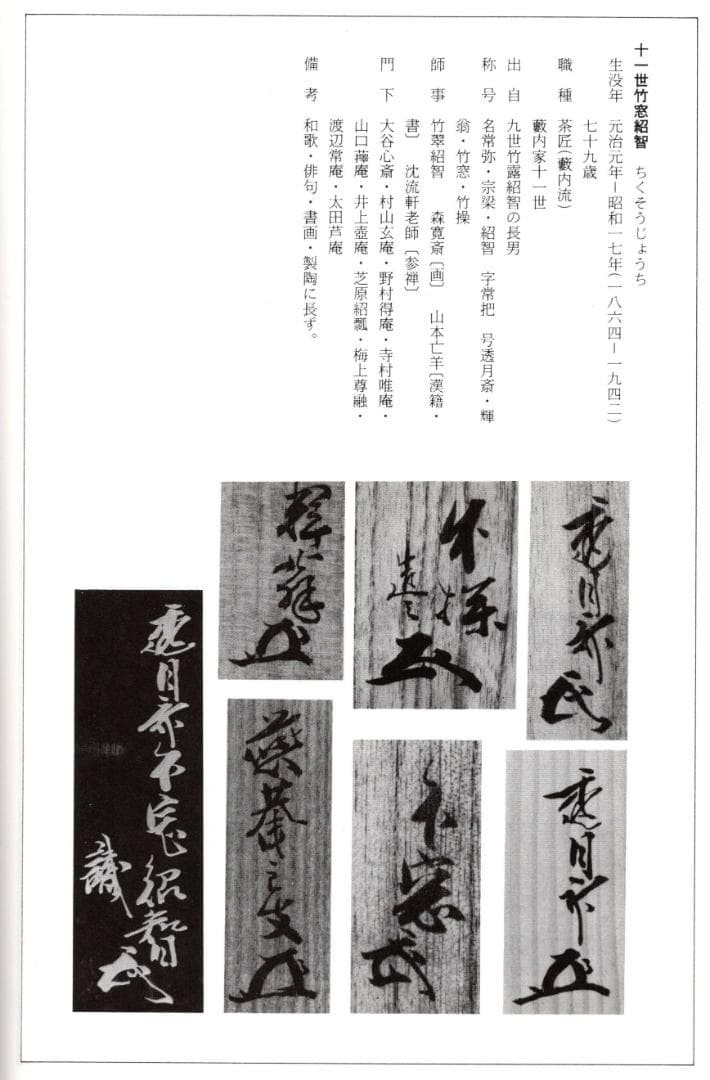 十一世竹窓紹智 ちくそうじょうち
生没年 元治元年−昭和一七年(一八六四−一九四二)
七十九歳
職種 茶匠(藪内流)
藪内家十一世
出自 九世竹露紹智の長男
称号 名常弥・宗梁・紹智 字常把 号透月斎・輝
翁・竹窓・竹操
師事 竹翠紹智 森寛斎〔画〕 山本亡羊〔漢籍・
書〕 沈流軒老師〔参禅〕
門下 大谷心斎・村山玄庵・野村得庵・寺村唯庵・
山口蘀庵・井上壺庵・芝原紹瓢・梅上尊融・
渡辺常庵・太田芦庵
備考 和歌・俳句・書画・製陶に長ず。
透月斎
竹操
造之
輝翁
透月斎
竹窓
燕庵之文
透月斎竹窓紹智
識